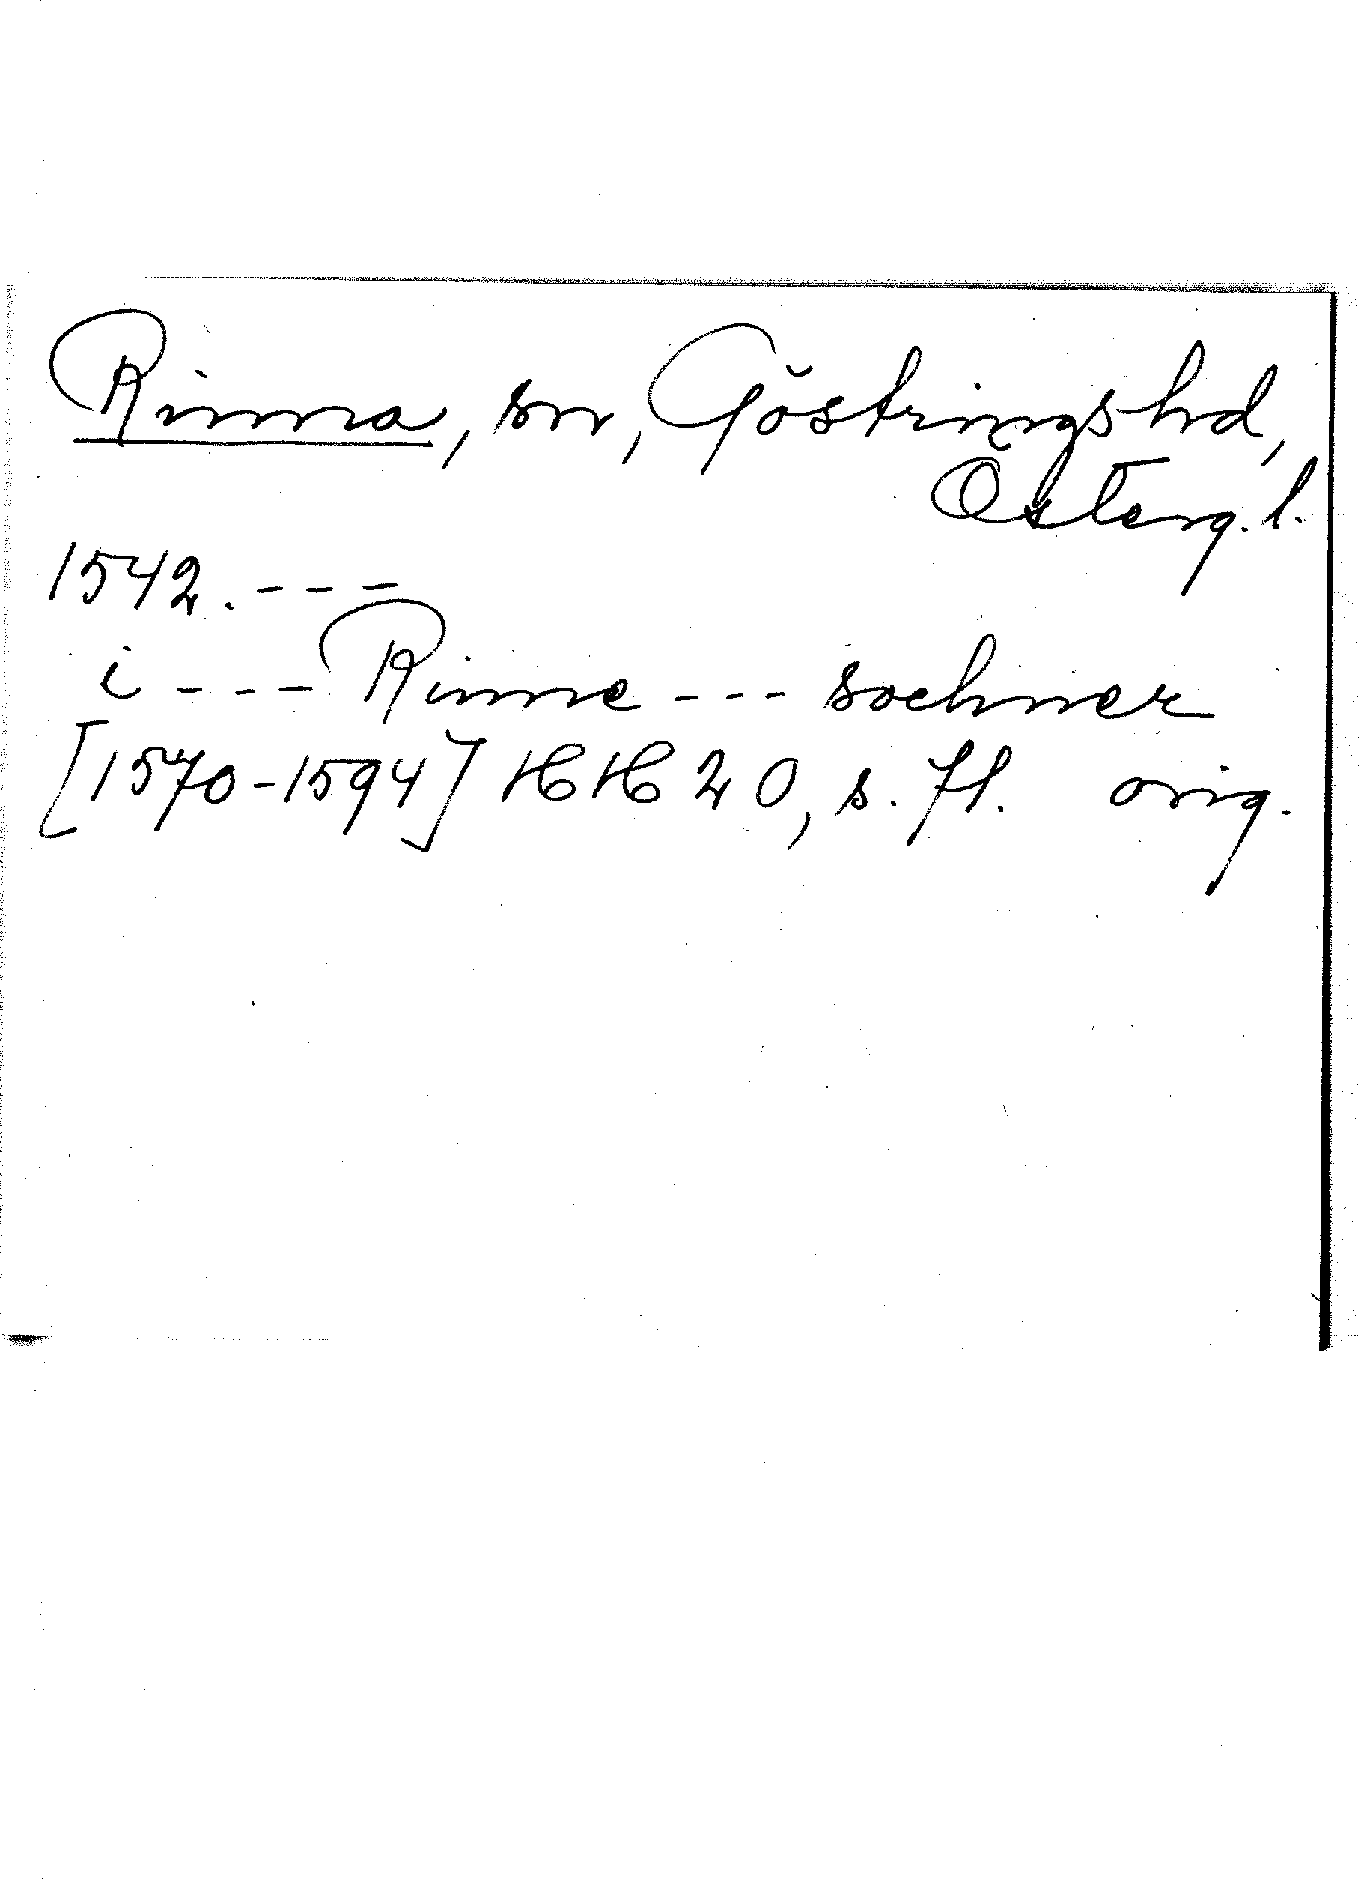 Rinna, sn, Göstringshd,
Österg. l.
1542. - - -
i - - - Rinne - - - sochner
[1570-1594] HH 20, s. 71. orig.